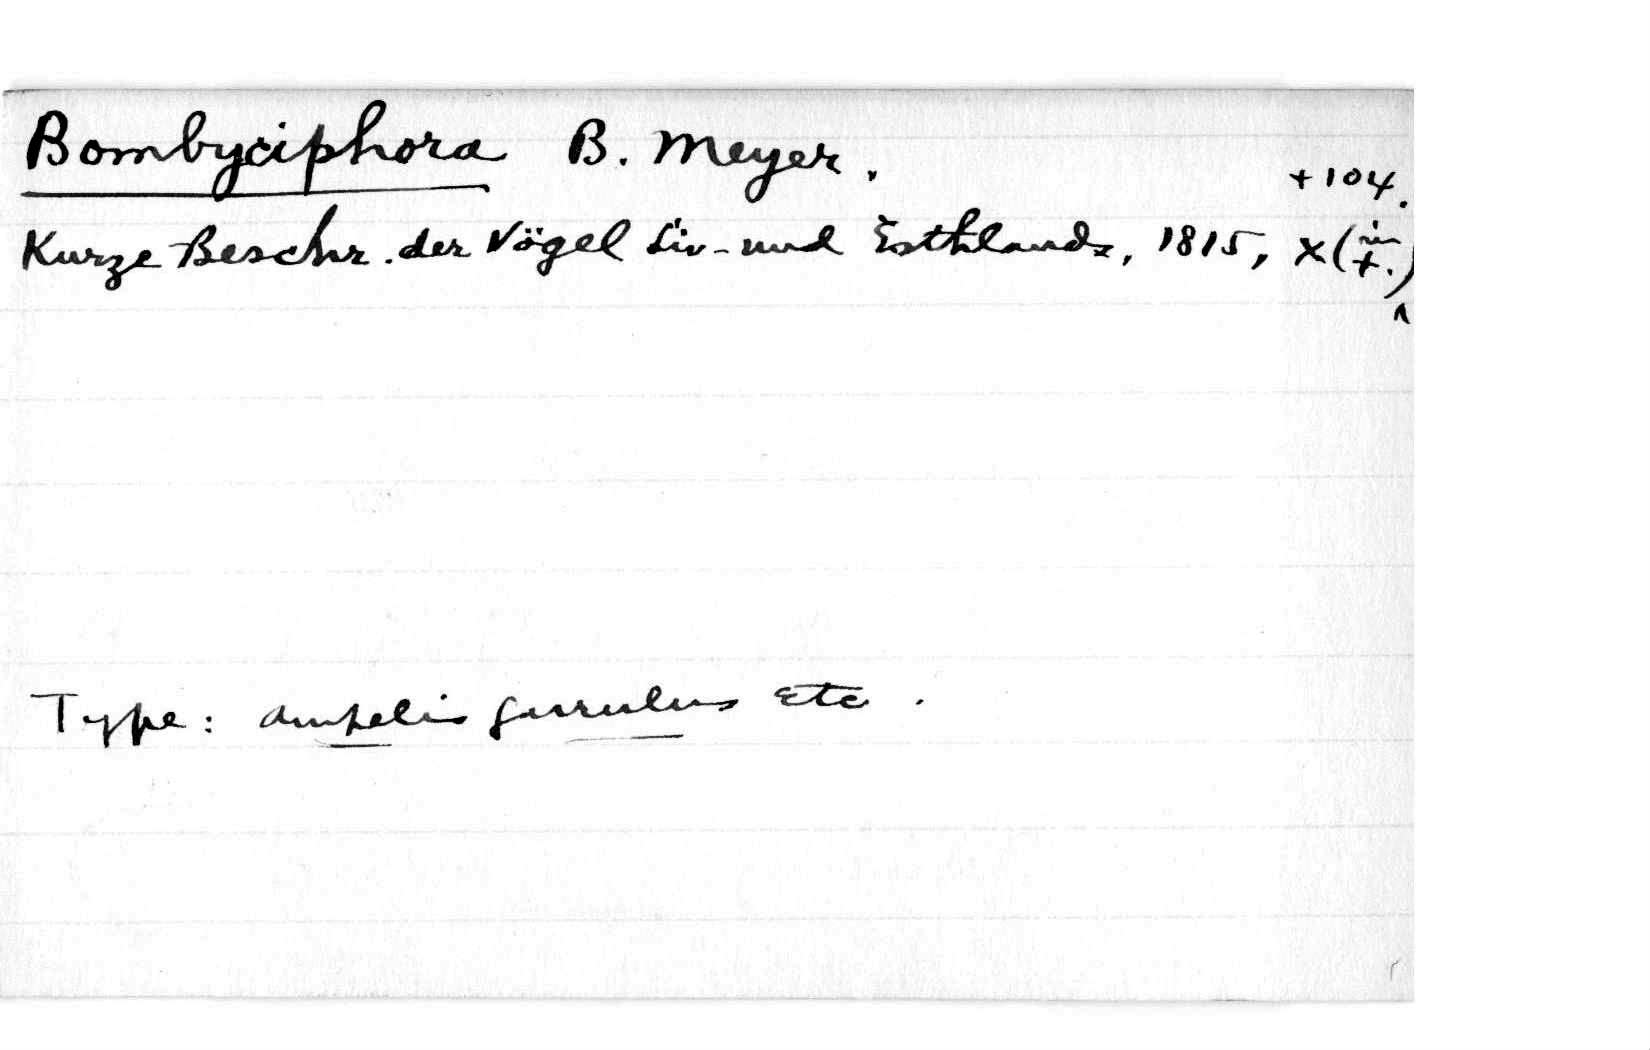 Bombyciphora B. Meyer.
+104.
Kurze Beschr. der Vögel Liv- und Esthlands, 1815, X(in t.)
Type: Ampelis garrulus etc.